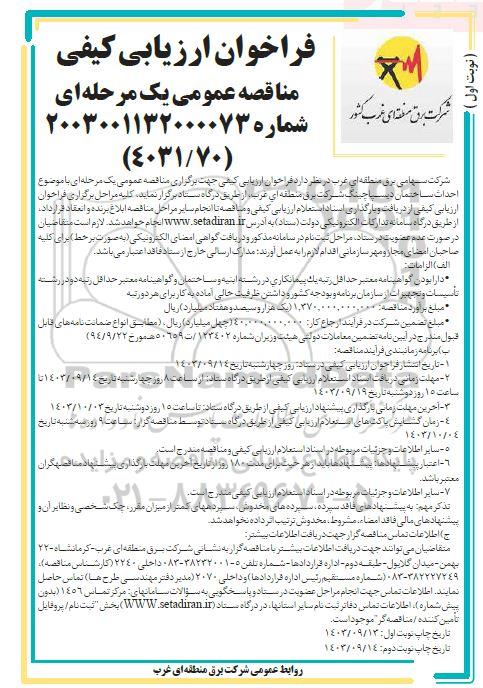 فراخوان ارزیابی کیفی
مناقصه عمومی یک مرحله‌ای
شماره ۲۰۰۳۰۰۱۱۳۲۰۰۰۰۷۳
(۴۰۳۱/۷۰)
شرکت برق منطقه‌ای غرب کشور
(نوبت اول)
شرکت سهامی برق منطقه‌ای غرب در نظر دارد فراخوان ارزیابی کیفی جهت برگزاری مناقصه عمومی یک مرحله‌ای با موضوع
احداث ساختمان دیسپاچینگ شرکت برق منطقه ای غرب، از طریق درگاه ستاد برگزار نماید، کلیه مراحل برگزاری فراخوان
ارزیابی کیفی از دریافت و بارگذاری اسناد استعلام ارزیابی کیفی و مناقصه تا انجام سایر مراحل مناقصه ابلاغ برنده و انعقاد قرارداد،
از طریق درگاه سامانه تدارکات الکترونیکی دولت (ستاد) به آدرس www.setadiran.ir انجام خواهد شد. لازم است متقاضیان
در صورت عدم عضویت در ستاد، مراحل ثبت نام در سامانه مذکور و دریافت گواهی امضای الکترونیکی (به صورت برخط) برای کلیه
صاحبان امضای مجاز و مهر سازمانی اقدام لازم را به عمل آورند؛ مدارک ارسالی خارج از ستاد فاقد اعتبار می باشد.
الف) الزامات:
•دارا بودن گواهینامه معتبر حداقل رتبه یک پیمانکاری در رشته ابنیه و ساختمان و گواهینامه معتبر حداقل رتبه دو در رشته
تأسیسات و تجهیزات از سازمان برنامه و بودجه کشور و داشتن ظرفیت خالی آماده به کار برای هر دو رتبه
•مبلغ برآورد مناقصه: ۱,۳۷۰,۰۰۰,۰۰۰,۰۰۰ (یک هزار و سیصد و هفتاد میلیارد) ریال
•مبلغ تضمین شرکت در فرآیند ارجاع کار: ۴۰,۰۰۰,۰۰۰,۰۰۰ (چهل میلیارد) ریال، (مطابق انواع ضمانت نامه های قابل
قبول مندرج در آیین نامه تضمین معاملات دولتی هیئت وزیران شماره ۱۲۳۴۰۲/ت۵۰۶۵۹ه مورخ ۹۴/۹/۲۲)
ب) برنامه زمانبندی فرآیند مناقصه:
۱-تاریخ انتشار فراخوان ارزیابی کیفی در ستاد: روز چهارشنبه تاریخ ۱۴۰۳/۰۹/۱۴
۲-مهلت زمانی دریافت اسناد استعلام ارزیابی کیفی از طریق درگاه ستاد: از ساعت ۸ روز چهارشنبه تاریخ ۱۴۰۳/۰۹/۱۴ تا
ساعت ۱۵ روز دوشنبه تاریخ ۱۴۰۳/۰۹/۱۹
۳-آخرین مهلت زمانی بارگذاری پیشنهاد ارزیابی کیفی از طریق درگاه ستاد: تا ساعت ۱۵ روز دوشنبه تاریخ ۱۴۰۳/۱۰/۰۳
۴-زمان گشایش پاکت های استعلام ارزیابی کیفی از طریق درگاه ستاد توسط مناقصه گزار: ساعت ۹ روز سه شنبه تاریخ
۱۴۰۳/۱۰/۰۴
۵-سایر اطلاعات و جزئیات مربوطه در اسناد استعلام ارزیابی کیفی و مناقصه مندرج است.
۶-اعتبار پیشنهادها: پیشنهادها باید از هر حیث برای مدت ۱۸۰ روز از تاریخ آخرین مهلت بارگذاری پیشنهاد مناقصهگران
معتبر باشد.
۷-سایر اطلاعات و جزئیات مربوطه در اسناد استعلام ارزیابی کیفی مندرج است.
تذکر مهم: به پیشنهادهای فاقد سپرده، سپرده های مخدوش، سپردههای کمتر از میزان مقرر، چک شخصی و نظایر آن و
پیشنهادهای مالی فاقد امضاء، مشروط، مخدوش ترتیب اثر داده نخواهد شد.
ج) اطلاعات تماس مناقصه گزار جهت دریافت اطلاعات بیشتر:
متقاضیان می توانند جهت دریافت اطلاعات بیشتر با مناقصه گزار به نشانی شرکت برق منطقه ای غرب-کرمانشاه-۲۲
بهمن-میدان گلایول-طبقه دوم-اداره قراردادها-شماره تلفن ۵-۳۸۲۳۲۰۰۱-۰۸۳ داخلی ۲۲۴۰ (کارشناس مناقصه)،
۳۸۲۲۷۲۴۹-۰۸۳ (شماره مستقیم رئیس اداره قراردادها) و داخلی ۲۰۷۰ (مدیر دفتر مهندسی طرح ها) تماس حاصل
نمایند. اطلاعات تماس جهت انجام مراحل عضویت در ستاد و پاسخگویی به سؤالات سامانهای: مرکز تماس ۱۴۵۶ (بدون
پیش شماره)، اطلاعات تماس دفاتر ثبت نام سایر استانها، در درگاه ستاد (WWW.setadiran.ir) بخش "ثبت نام/پروفایل
تأمین کننده/مناقصه گر" موجود است.
تاریخ چاپ نوبت اول: ۱۴۰۳/۰۹/۱۳
تاریخ چاپ نوبت دوم: ۱۴۰۳/۰۹/۱۴
روابط عمومی شرکت برق منطقه‌ای غرب
۰۲۱-۸۸۳۴۹۶۷۰-۵